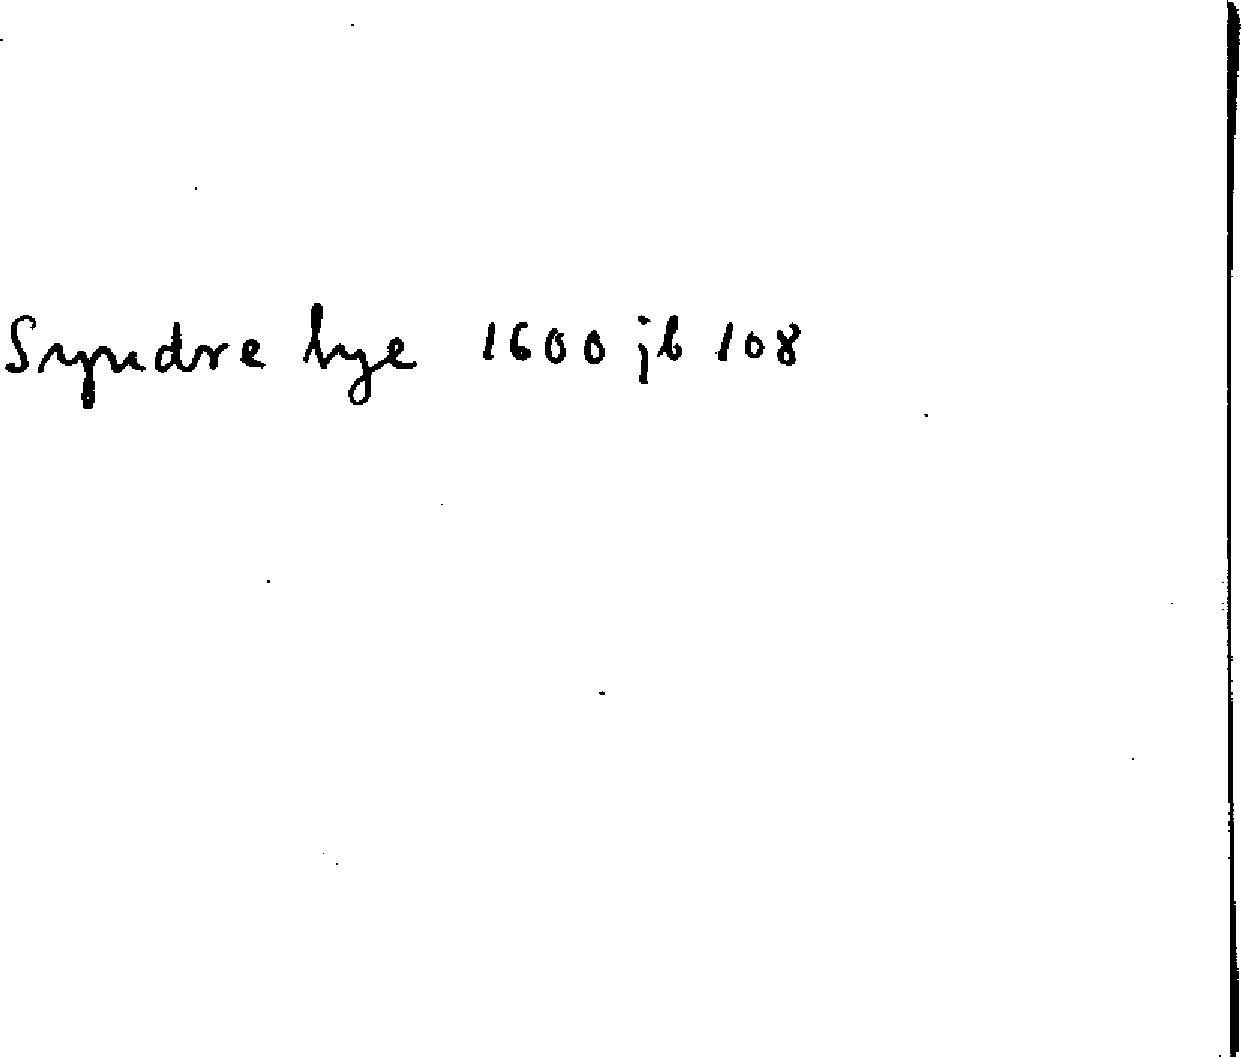 Syndre bye 1600 jb 108